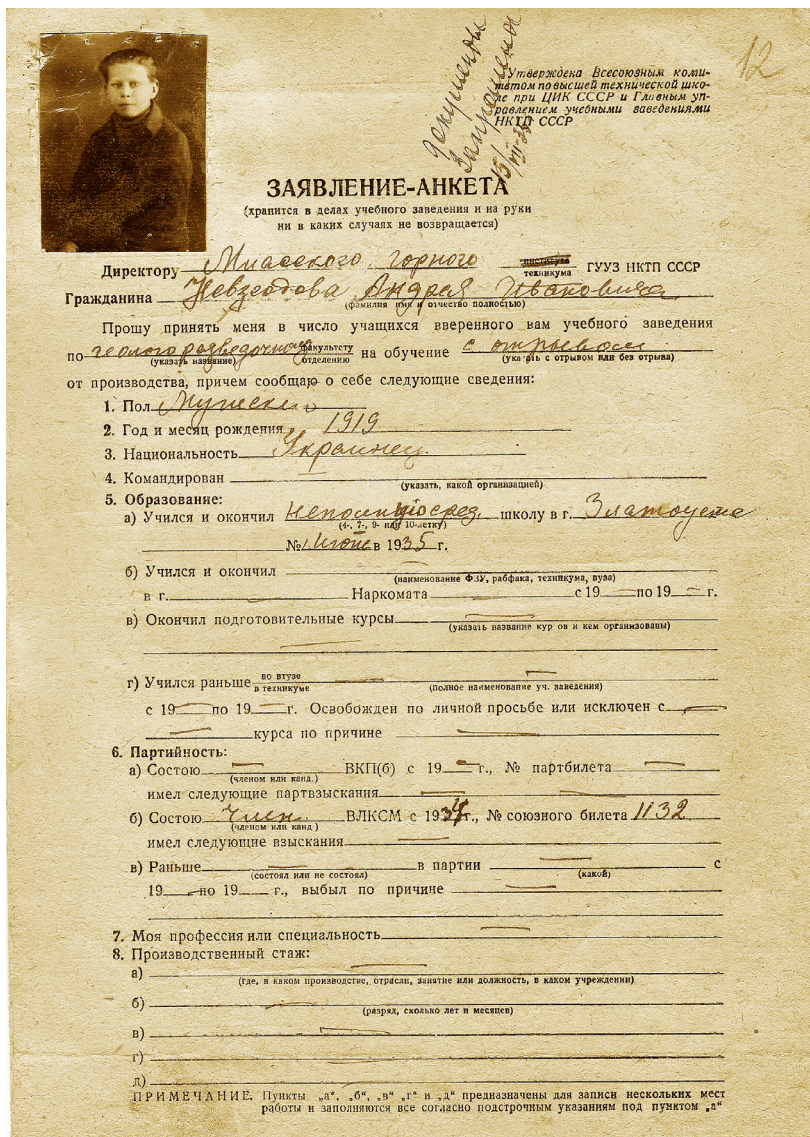 12
Документы
Запрошены
Утверждена Всесоюзным коми-
тетом по высшей технической шко-
ле при ЦИК СССР и Главным уп-
равлением учебными заведениями
НКТП СССР
ЗАЯВЛЕНИЕ-АНКЕТА
(хранится в делах учебного заведения и на руки
ни в каких случаях не возвращается)
Директору Миасского горного института техникума ГУУЗ НКТП СССР
Гражданина Невзгодова Андрея Ивановича
(фамилия имя и отчество полностью)
Прошу принять меня в число учащихся вверенного вам учебного заведения
по геологоразведочному факультету отделению на обучение с отрывом
(указать название) (указать с отрывом или без отрыва)
от производства, причем сообщаю о себе следующие сведения:
1. Пол Мужской
2. Год и месяц рождения 1919
3. Национальность Украинец
4. Командирован
(указать, какой организацией)
5. Образование:
а) Учился и окончил школу в г. Златоусте
(4-, 7-, 9- или 10-летку)
№ 1 в 1935 г.
б) Учился и окончил
(наименование ФЗУ, рабфака, техникума, вуза)
в г. Наркомата с 19 по 19 г.
в) Окончил подготовительные курсы
(указать название кур ов и кем организованы)
г) Учился раньше во втузе в техникуме
(полное наименование уч. заведения)
с 19 по 19 г. Освобожден по личной просьбе или исключен с
курса по причине
6. Партийность:
а) Состою ВКП(б) с 19 г., № партбилета
(членом или канд.)
имел следующие партвзыскания
б) Состою член ВЛКСМ с 1934 г., № союзного билета 1132
(членом или канд )
имел следующие взыскания
в) Раньше в партии с
(состоял или не состоял) (какой)
19 по 19 г., выбыл по причине
7. Моя профессия или специальность
8. Производственный стаж:
а)
(где, в каком производстве, отрасли, занятие или должность, в каком учреждении)
б)
(разряд, сколько лет и месяцев)
в)
г)
д)
ПРИМЕЧАНИЕ. Пункты „а“, „б“, „в“ „г“ и „д“ предназначены для записи нескольких мест
работы и заполняются все согласно подстрочным указаниям под пунктом „а“